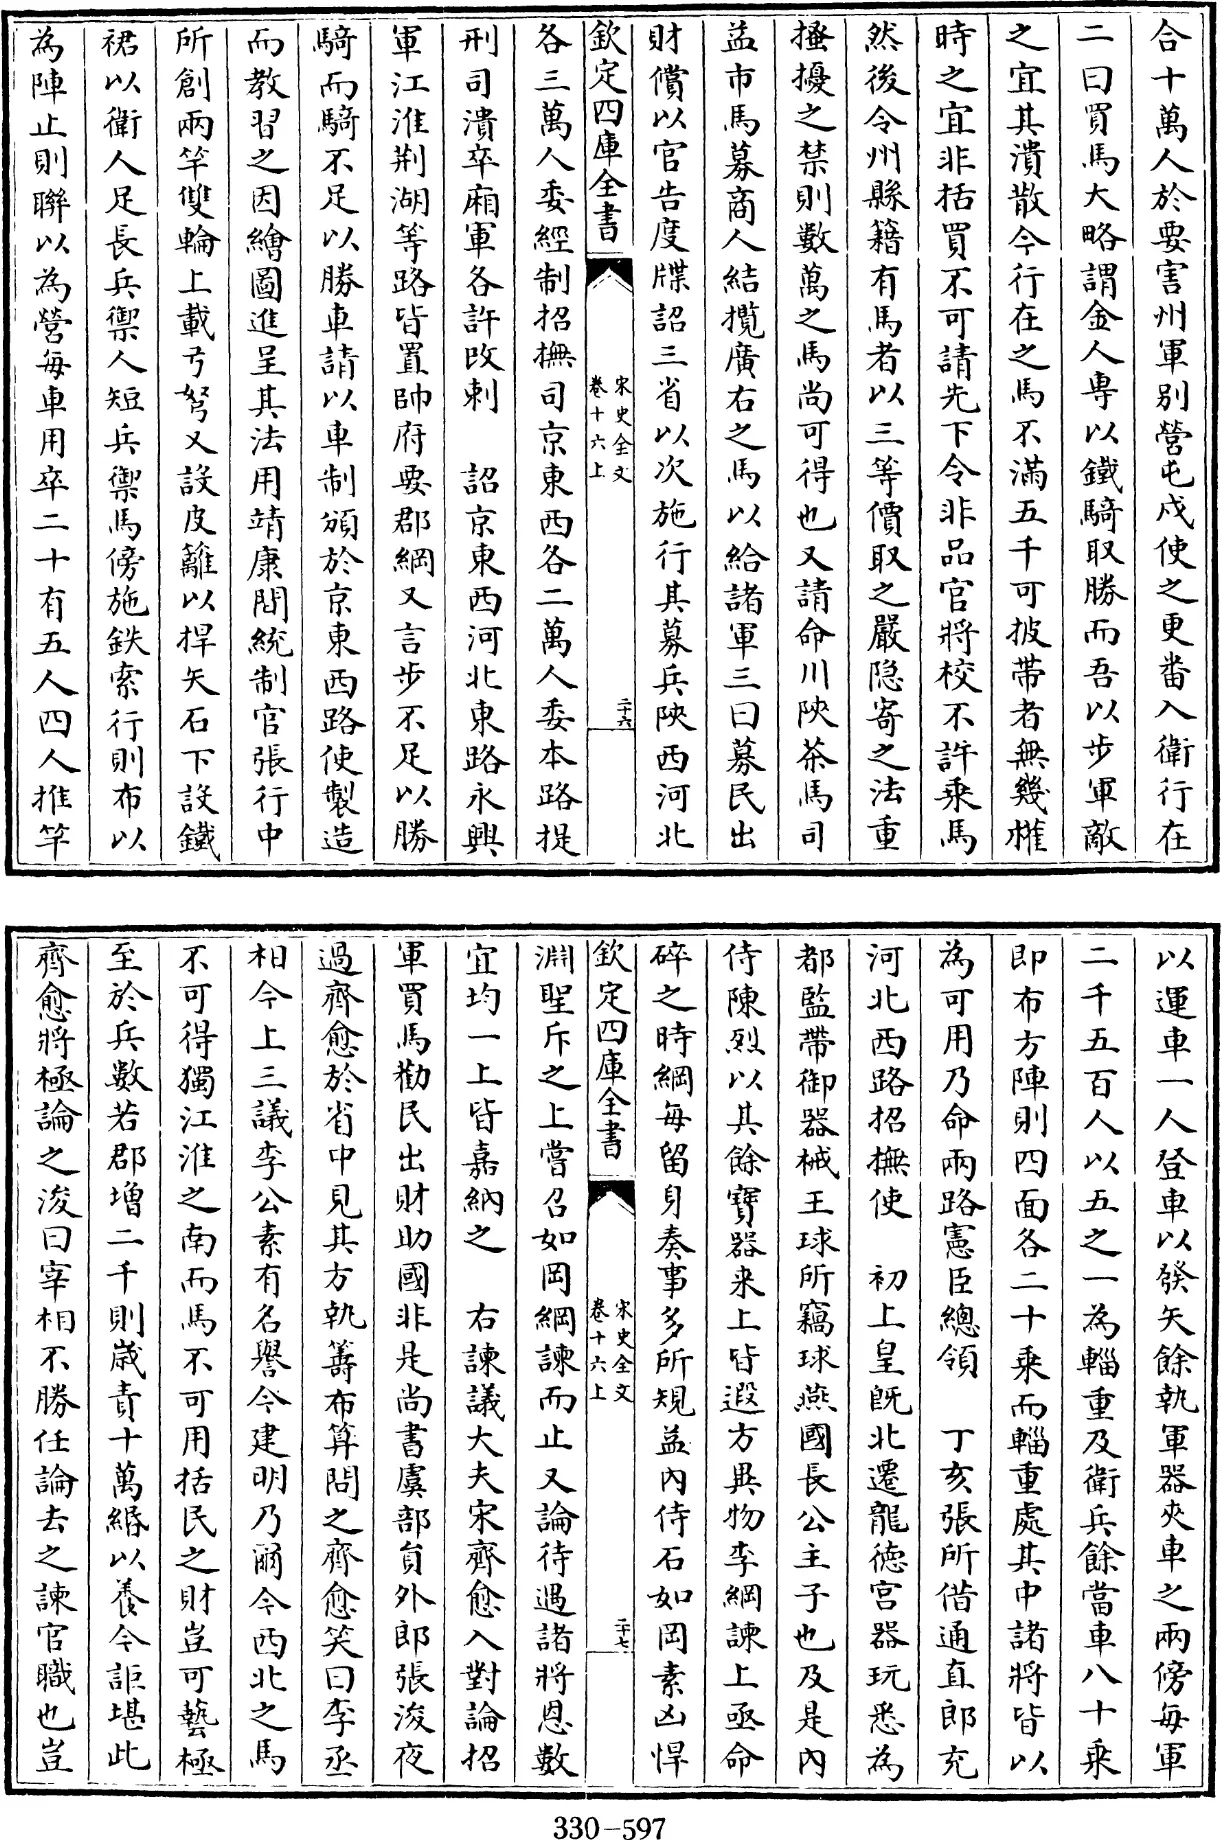 合十萬人於要害州軍别營屯戍使之更畨入衛行在
二曰買馬大略謂金人專以鐵騎取勝而吾以步軍敵
之宜其潰散今行在之馬不滿五千可披帶者無幾權
時之宜非括買不可請先下令非品官將校不許乗馬
然後令州縣籍有馬者以三等價取之嚴隐寄之法重
搔擾之禁則數萬之馬尚可得也又請命川陜茶馬司
益市馬募商人結攬廣右之馬以給諸軍三曰募民出
財償以官告度牒詔三省以次施行其募兵陜西河北
欽定四庫全書
宋史全文
卷十六上
二十六
各三萬人委經制招撫司京東西各二萬人委本路提
刑司潰卒廂軍各許改刺　詔京東西河北東路永興
軍江淮荆湖等路皆置帥府要郡綱又言步不足以勝
騎而騎不足以勝車請以車制頒於京東西路使製造
而教習之因繪圖進呈其法用靖康間統制官張行中
所創兩竿雙輪上載弓弩又設皮籬以捍矢石下設鐵
裙以衛人足長兵禦人短兵禦馬傍施鉄索行則布以
為陣止則聯以為營每車用卒二十有五人四人推竿
以運車一人登車以發矢餘執軍器夾車之兩傍每軍
二千五百人以五之一為輜重及衛兵餘當車八十乗
即布方陣則四面各二十乗而輜重處其中諸將皆以
為可用乃命兩路憲臣總領　丁亥張所借通直郎充
河北西路招撫使　初上皇旣北遷龍徳宫器玩悉為
都監帶御器械王球所竊球燕國長公主子也及是内
侍陳烈以其餘寶器来上皆遐方異物李綱諫上亟命
碎之時綱每留身奏事多所規益内侍石如岡素凶悍
欽定四庫全書
宋史全文
卷十六上
二十七
淵聖斥之上嘗召如岡綱諫而止又論待遇諸將恩數
宜均一上皆嘉納之　右諫議大夫宋齊愈入對論招
軍買馬勸民出財助國非是尚書虞部貟外郎張浚夜
過齊愈於省中見其方執籌布算問之齊愈笑曰李丞
相今上三議李公素有名譽今建明乃爾今西北之馬
不可得獨江淮之南而馬不可用括民之財豈可藝極
至於兵數若郡增二千則嵗責十萬緡以養今詎堪此
齊愈將極論之浚曰宰相不勝任論去之諫官職也豈
330-597